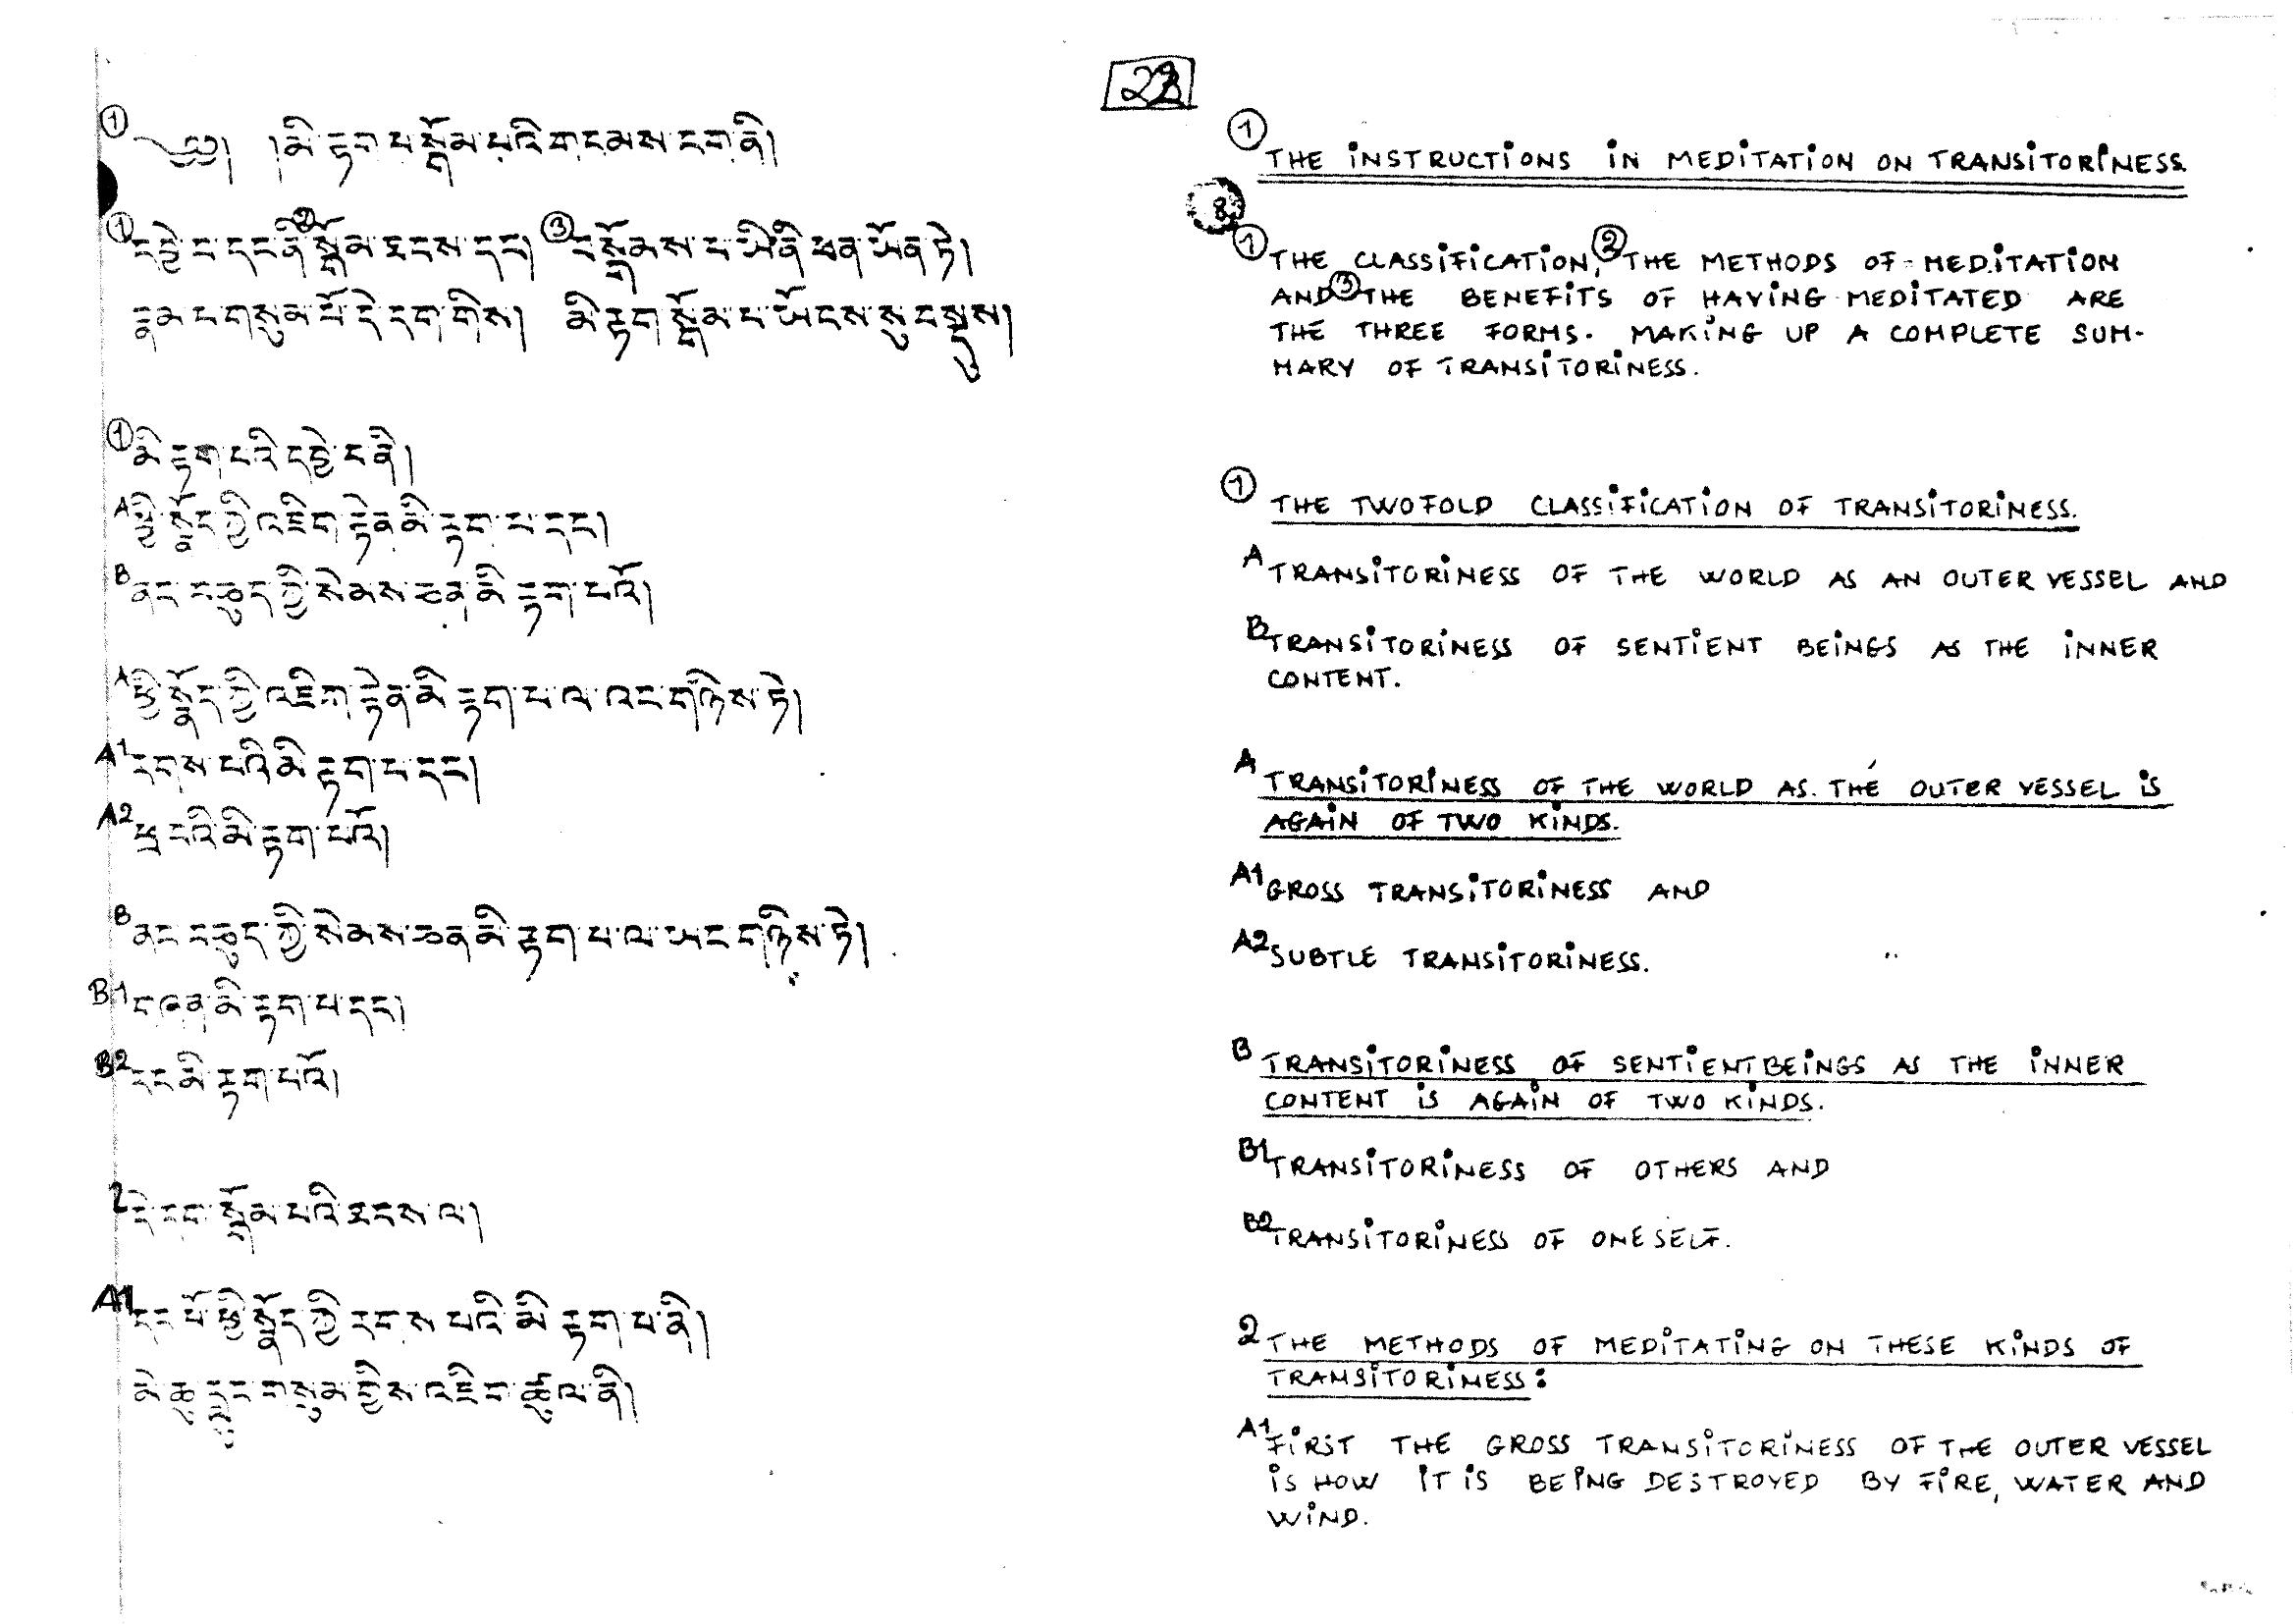 ① ༄༅། །མི་རྟག་པ་སྒོམ་པའི་གདམས་ངག་ནི།
① དབྱེ་བ་དང་ནི་② སྒོམ་ཚངས་དང། ③ བསྒོམས་པ་ཡི་ནི་ཕན་ཡོན་ཏེ།
རྣམ་པ་གསུམ་པོ་དེ་དག་གིས། མི་རྟག་སྒོམ་པ་ཡོངས་སུ་བསྡུས།
① མི་རྟག་པའི་དབྱེ་བ་ནི།
A ཕྱི་སྣོད་ཀྱི་འཇིག་རྟེན་མི་རྟག་པ་དང།
B ནང་བཅུད་ཀྱི་སེམས་ཅན་མི་རྟག་པའོ།
A ཕྱི་སྣོད་ཀྱི་འཇིག་རྟེན་མི་རྟག་པ་ལ་འང་གཉིས་ཏེ།
A1 རགས་པའི་མི་རྟག་པ་དང།
A2 ཕྲ་བའི་མི་རྟག་པའོ།
B ནང་བཅུད་ཀྱི་སེམས་ཅན་མི་རྟག་པ་ལ་ཡང་གཉིས་ཏེ།
B1 གཞན་མི་རྟག་པ་དང།
B2 རང་མི་རྟག་པའོ།
2 དེ་དག་སྒོམ་པའི་ཚངས་ལ།
A1 དང་པོ་ཕྱི་སྣོད་ཀྱི་རགས་པའི་མི་རྟག་པ་ནི།
མེ་ཆུ་རླུང་གསུམ་གྱིས་འཇིག་ཚུལ་ནི།
① THE INSTRUCTIONS IN MEDITATION ON TRANSITORINESS
① THE CLASSIFICATION, ② THE METHODS OF MEDITATION
AND ③ THE BENEFITS OF HAVING MEDITATED ARE
THE THREE FORMS. MAKING UP A COMPLETE SUM-
MARY OF TRANSITORINESS.
① THE TWOFOLD CLASSIFICATION OF TRANSITORINESS.
A TRANSITORINESS OF THE WORLD AS AN OUTER VESSEL AND
B TRANSITORINESS OF SENTIENT BEINGS AS THE INNER
CONTENT.
A TRANSITORINESS OF THE WORLD AS THE OUTER VESSEL IS
AGAIN OF TWO KINDS.
A1 GROSS TRANSITORINESS AND
A2 SUBTLE TRANSITORINESS.
B TRANSITORINESS OF SENTIENTBEINGS AS THE INNER
CONTENT IS AGAIN OF TWO KINDS.
B1 TRANSITORINESS OF OTHERS AND
B2 TRANSITORINESS OF ONESELF.
2 THE METHODS OF MEDITATING ON THESE KINDS OF
TRANSITORINESS:
A1 FIRST THE GROSS TRANSITORINESS OF THE OUTER VESSEL
IS HOW IT IS BEING DESTROYED BY FIRE, WATER AND
WIND.